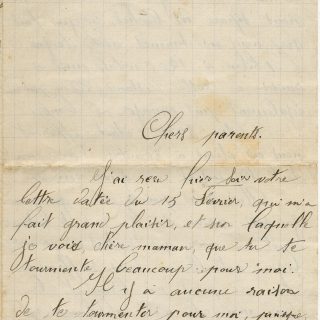 Chers parents.
J'ai reçu hier soir votre
lettre datée du 15 Février, qui m'a
fait grand plaisir, et sur laquelle
je vois chère maman, que tu te
tourmente beaucoup pour moi.
Il y a aucune raison
de te tourmenter pour moi, puisque